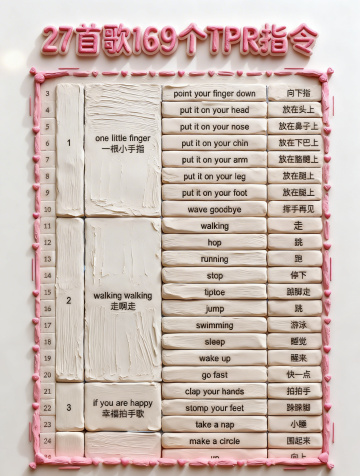 27首歌169个TPR指令
3 point your finger down 向下指
4 put it on your head 放在头上
5 put it on your nose 放在鼻子上
6 put it on your chin 放在下巴上
1 one little finger 一根小手指
7 put it on your arm 放在胳膊上
8 put it on your leg 放在腿上
9 put it on your foot 放在腿上
10 wave goodbye 挥手再见
11 walking 走
12 hop 跳
13 running 跑
14 stop 停下
2 walking walking 走啊走
15 tiptoe 踮脚走
16 jump 跳
17 swimming 游泳
18 sleep 睡觉
19 wake up 醒来
20 go fast 快一点
21 clap your hands 拍拍手
3 if you are happy 幸福拍手歌
22 stomp your feet 跺跺脚
23 take a nap 小睡
24 make a circle 围起来
up 向上